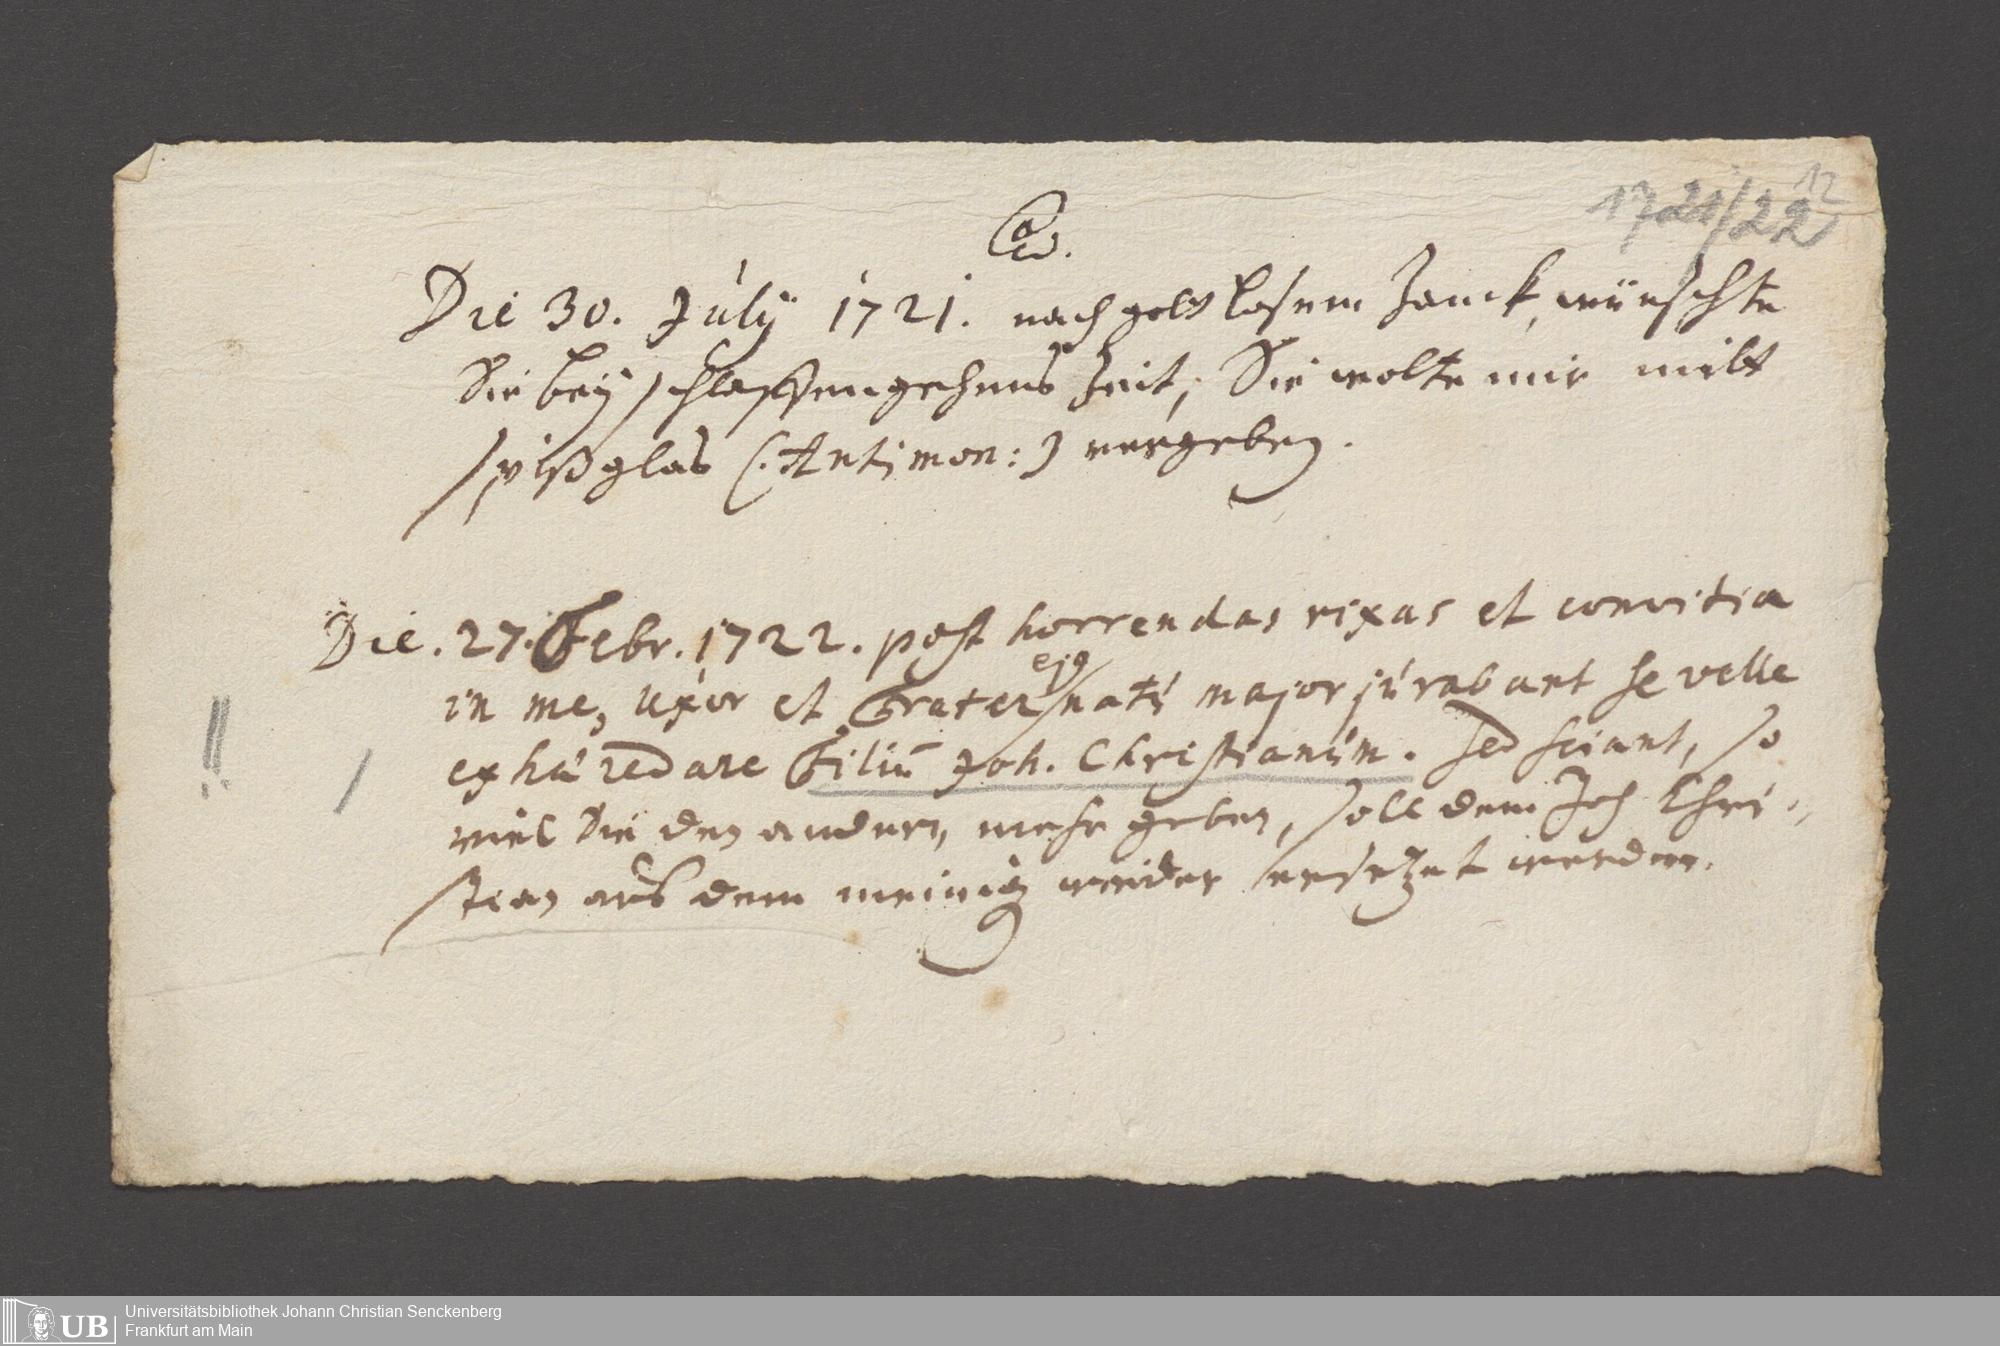 12
1721/22
Die 30. July 1721. nach gottlosem Zanck, wünschte
Sie bey schlaffengehens Zeit, Sie wolte mir mitt
spißglas (: Antimon :) vergeben.
Die. 27. Febr. 1722. post horrendas rixas et convitia
in me, uxor et Frater ejq natu major jurabant se velle
exhæredare Filiū Joh. Christianum. sed sciant, so
viel Sie den andern, mehr geben, soll dem Joh Chri-
stian aus dem meinig wieder ersetzet werden.
!!
Universitätsbibliothek Johann Christian Senckenberg
Frankfurt am Main
UB